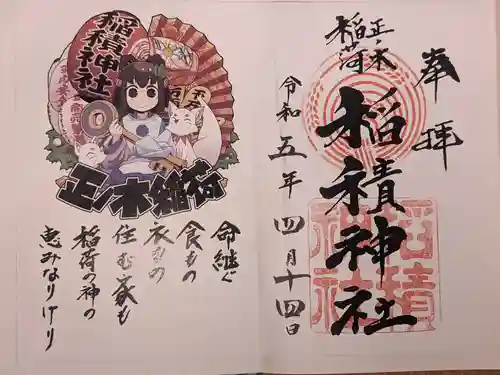 奉拝
正ノ木
稲荷
稲積神社
令和五年四月十四日
稲積神社
稲積神社
正ノ木稲荷
命継ぐ
食もの
衣もの
住む家も
稲荷の神の
恵みなりけり